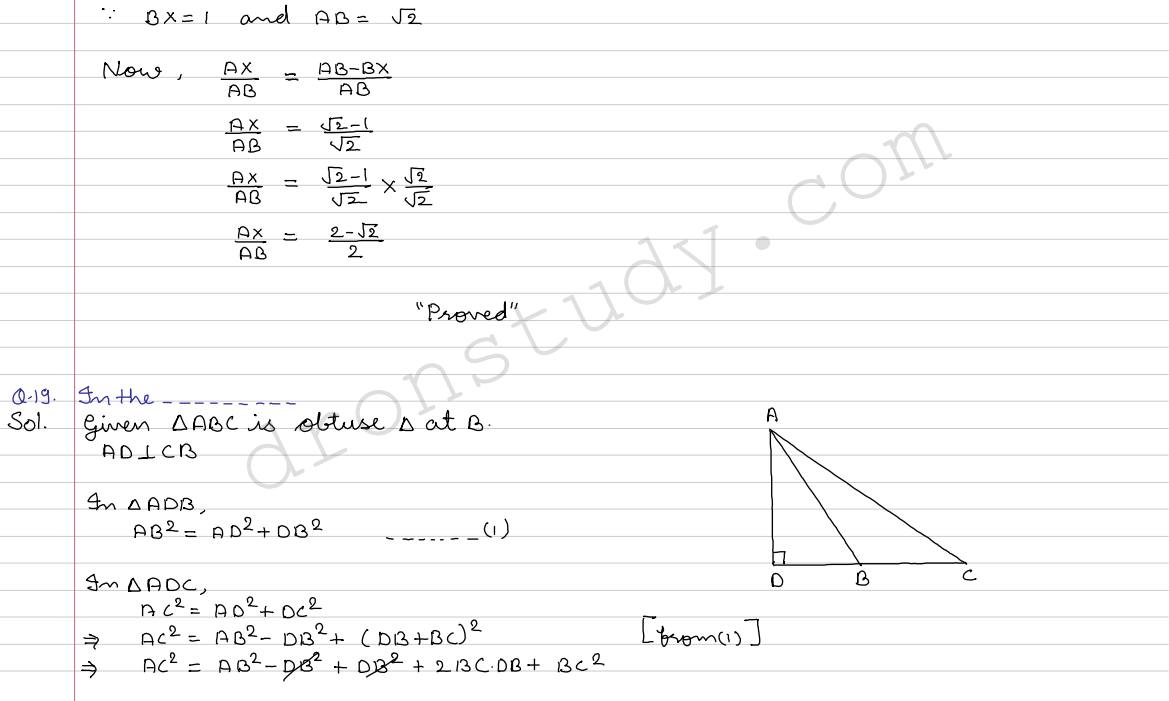 ∵ BX = 1 and AB = √2
Now, AX/AB = AB-BX/AB
AX/AB = √2-1/√2
AX/AB = √2-1/√2 × √2/√2
AX/AB = 2-√2/2
"Proved"
Q.19. In the ----------
Sol. Given △ABC is obtuse △ at B.
AD⊥CB
In △ADB,
AB² = AD² + DB² -------(1)
In △ADC,
AC² = AD² + DC²
⇒ AC² = AB² - DB² + (DB+BC)² [from(1)]
⇒ AC² = AB² - DB² + DB² + 2BC.DB + BC²
A
D B C
dronstudy.com